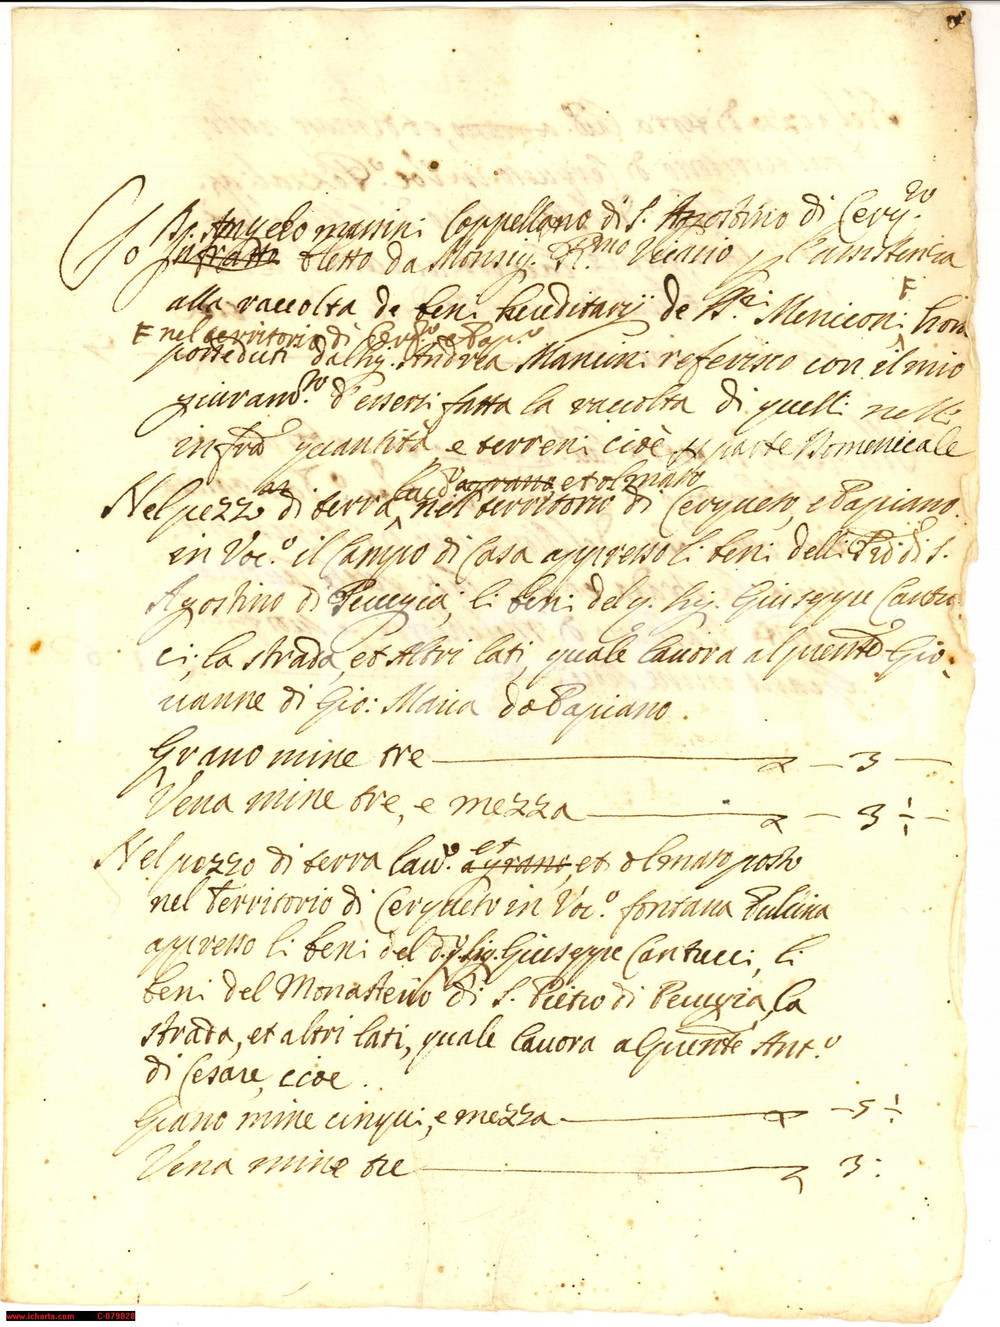 Io Bp. Angelo Massini Cappellano di S. Agostino di Cerq.to
Infratto eletto da Monsig. R.mo Vicario p l'assistenza
alla raccolta de beni hereditarij de SS.ri Meniconi F hora
F nel territorio di Cerq.to e Pap.o
posseduti dal Sig. Andrea Mancini referisco con il mio
giuram.to d'essersi fatta la raccolta di quelli nelle
infr.e quantità, e terreni cioè p parte Domenicale
lau.o agrano et olmato
Nel pezzo di terra nel territorio di Cerqueto, e Papiano
in Voc.o il Campo di Casa appresso li beni delli PP. di S.
Agostino di Perugia, li beni del q. Sig. Giuseppe Cantu
ci, la strada, et altri lati, quale lauora al presente Gio
uanne di Gio: Maria da Papiano.
Grano mine tre — 3 —
Vena mine tre, e mezza — 3 ÷ —
Nel pezzo di terra lau.o et agrano, et olmato posto
nel Territorio di Cerqueto in Voc.o fontana Pulcina
appresso li beni del d. q. Sig. Giuseppe Cantucci, li
beni del Monasterio di S. Pietro di Perugia, la
strada, et altri lati, quale lauora al presente Ant.o
di Cesare, cioe.
Grano mine cinque, e mezza — 5 ÷
Vena mine tre — 3 :
www.icharta.com C-079828